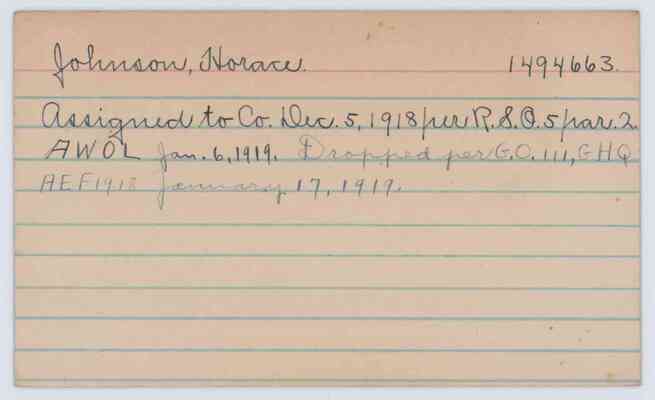 Johnson, Horace. 1494663.
Assigned to Co. Dec. 5, 1918 per R.S.O. 5 par. 2
AWOL Jan. 6, 1919. Dropped per G.O. 111, GHQ
AEF 1918 January 17, 1919.